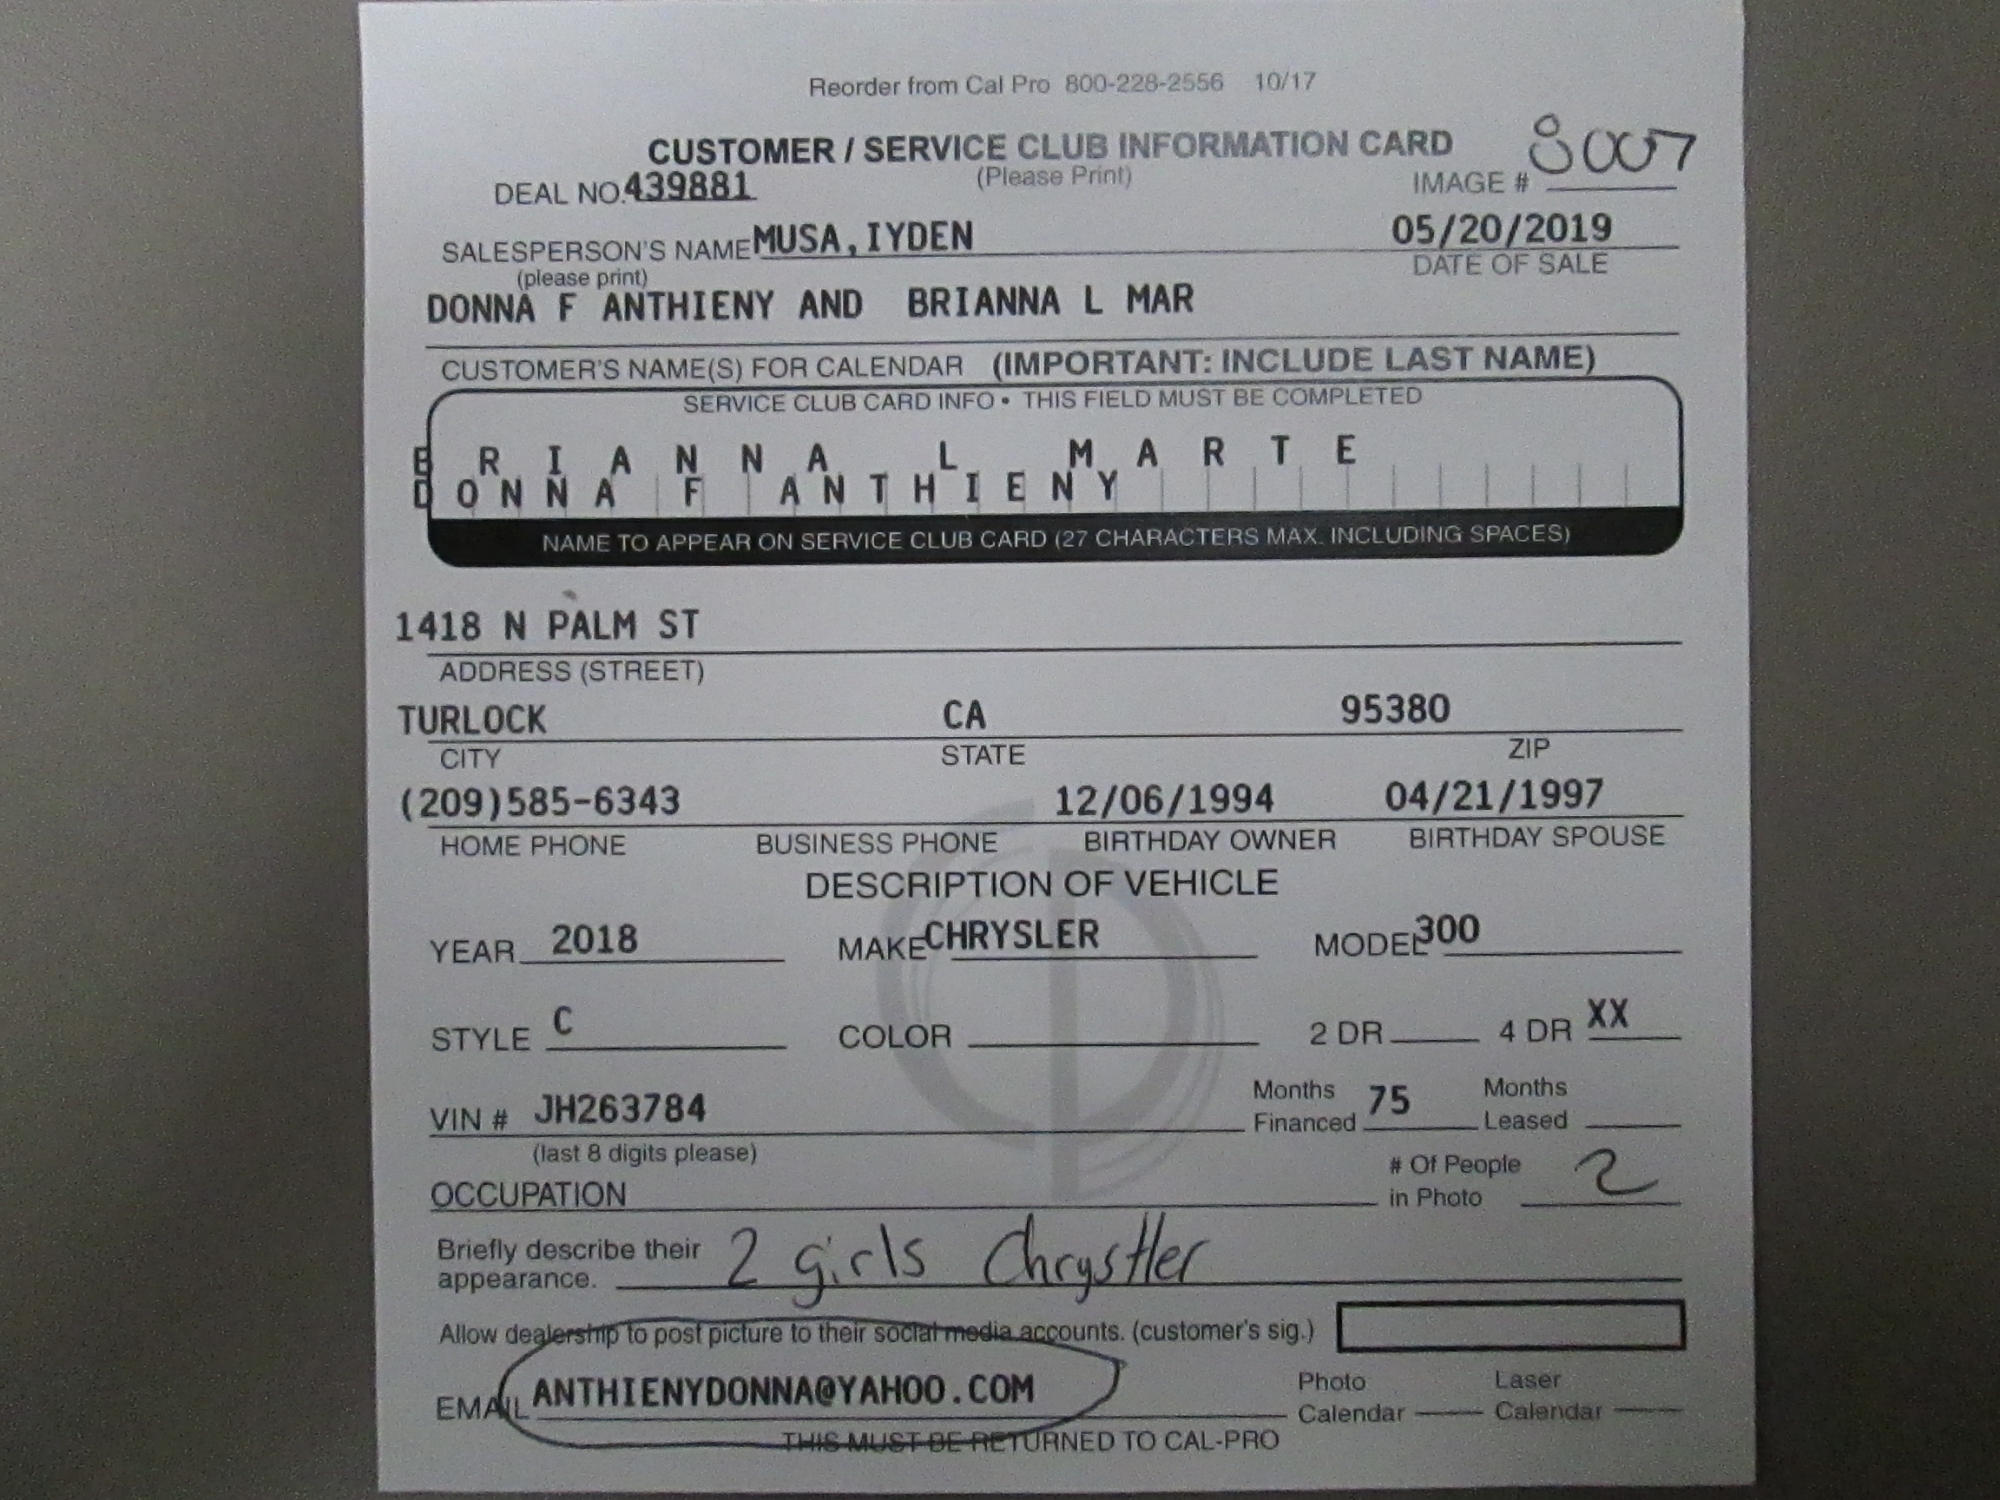 Reorder from Cal Pro 800-228-2556 10/17
CUSTOMER / SERVICE CLUB INFORMATION CARD
(Please Print)
DEAL NO. 439881
IMAGE # 8007
SALESPERSON'S NAME MUSA, IYDEN 05/20/2019
(please print) DATE OF SALE
DONNA F ANTHIENY AND BRIANNA L MAR
CUSTOMER'S NAME(S) FOR CALENDAR (IMPORTANT: INCLUDE LAST NAME)
SERVICE CLUB CARD INFO • THIS FIELD MUST BE COMPLETED
B R I A N N A L M A R T E
D O N N A F A N T H I E N Y
NAME TO APPEAR ON SERVICE CLUB CARD (27 CHARACTERS MAX. INCLUDING SPACES)
1418 N PALM ST
ADDRESS (STREET)
TURLOCK CA 95380
CITY STATE ZIP
(209)585-6343 12/06/1994 04/21/1997
HOME PHONE BUSINESS PHONE BIRTHDAY OWNER BIRTHDAY SPOUSE
DESCRIPTION OF VEHICLE
YEAR 2018 MAKE CHRYSLER MODEL 300
STYLE C COLOR 2 DR 4 DR XX
VIN # JH263784 Months Financed 75 Months Leased
(last 8 digits please)
OCCUPATION # Of People in Photo 2
Briefly describe their appearance. 2 girls Chrystler
Allow dealership to post picture to their social media accounts. (customer's sig.)
EMAIL ANTHIENYDONNA@YAHOO.COM Photo Calendar Laser Calendar
THIS MUST BE RETURNED TO CAL-PRO